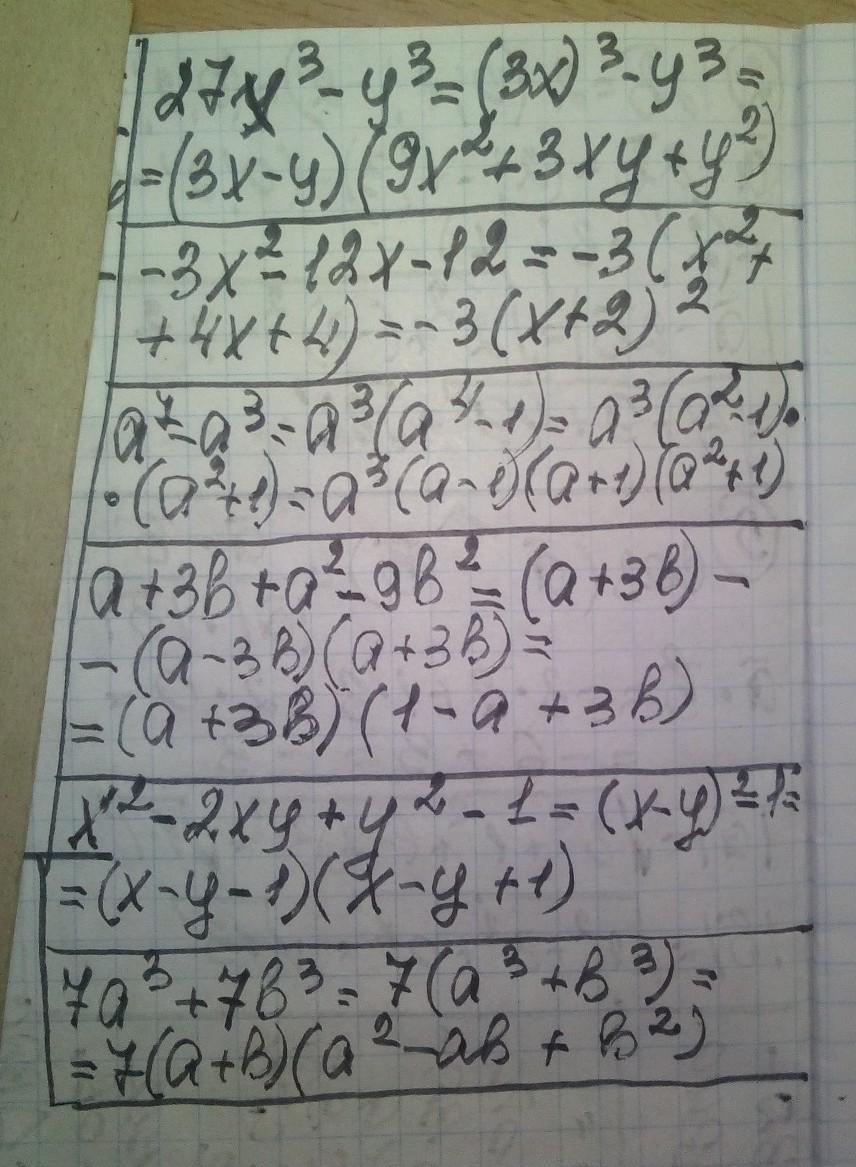 27x³ - y³ = (3x)³ - y³ =
= (3x - y)(9x² + 3xy + y²)
-3x² - 12x - 12 = -3(x² +
+ 4x + 4) = -3(x + 2)²
a⁷ - a³ = a³(a⁴ - 1) = a³(a² - 1)·
·(a² + 1) = a³(a - 1)(a + 1)(a² + 1)
a + 3b + a² - 9b² = (a + 3b) -
- (a - 3b)(a + 3b) =
= (a + 3b)(1 - a + 3b)
x² - 2xy + y² - 1 = (x - y)² - 1 =
= (x - y - 1)(x - y + 1)
7a³ + 7b³ = 7(a³ + b³) =
= 7(a + b)(a² - ab + b²)